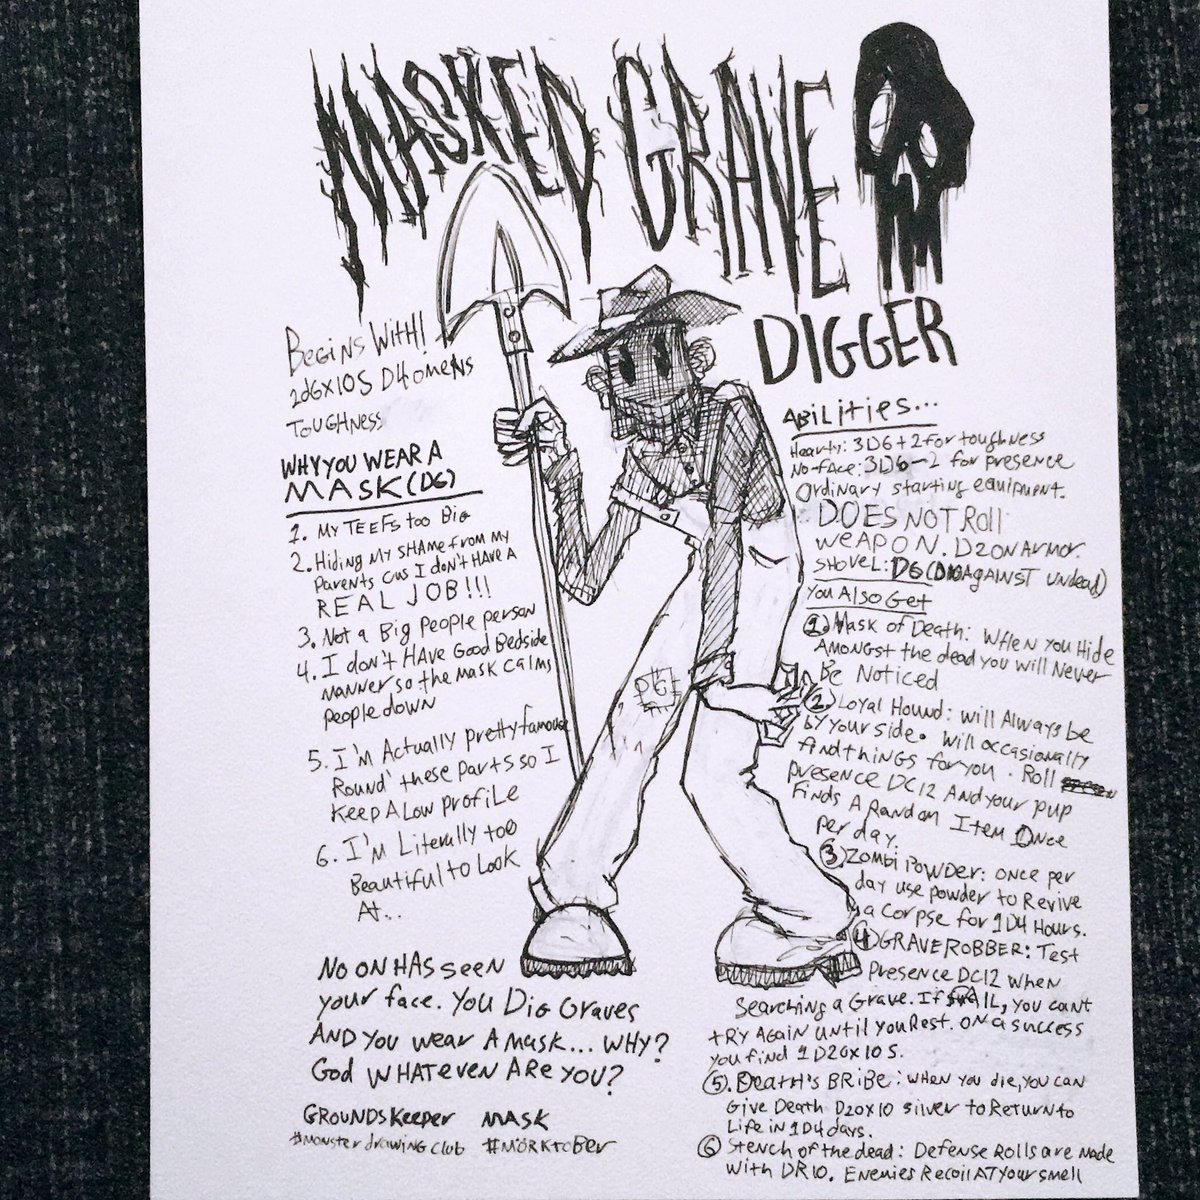 MASKED GRAVE
DIGGER
BEGINS WITH!
2d6x10S D4 OMENS
TOUGHNESS
WHY YOU WEAR A
MASK (D6)
1. MY TEEFS too BiG
2. Hiding My SHAme from my
Parents cus I don't HAVE A
REAL JOB!!!
3. Not a Big People person
4. I don't HAVE Good Bedside
manner so the mask calms
people down
5. I'm Actually pretty famouse
Round' these parts so I
Keep A Low profile
6. I'm Literally too
Beautiful to Look
At..
NO ON HAS seen
your face. You DiG Graves
AND you wear A mask... WHY?
God WHAT even ARE you?
GROUNDSKeeper MASK
#monsterdrawingclub #MÖRKTOBER
ABiLities...
Hearty: 3D6+2 for toughness
No-fAce: 3D6-2 for presence
Ordinary starting equipment.
DOES NOT Roll
WEAPON. D2 ON ARMOR.
SHOVEL: D6 ( AGAINST undead)
You Also Get
1 Mask of Death: WHEN YOU Hide
AMONGST the dead you will Never
Be Noticed
2 Loyal Hound: will Always be
by your side. Will occasionally
find things for you. Roll
presence DC12 And your pup
finds A Random Item Once
per day.
3 Zombi POWDER: once per
day use powder to Revive
a Corpse for 1D4 Hours.
4 GRAVEROBBER: Test
Presence DC12 when
Searching a Grave. If fAIL, you cant
tRY AGAIN until you Rest. On a success
you find 1D20x10 S.
5. Death's BRiBe: when you die, you can
Give Death D20x10 silver to Return to
Life in 1D4 days.
6 Stench of the dead: Defense Rolls are made
With DR10. Enemies Recoil AT your smell